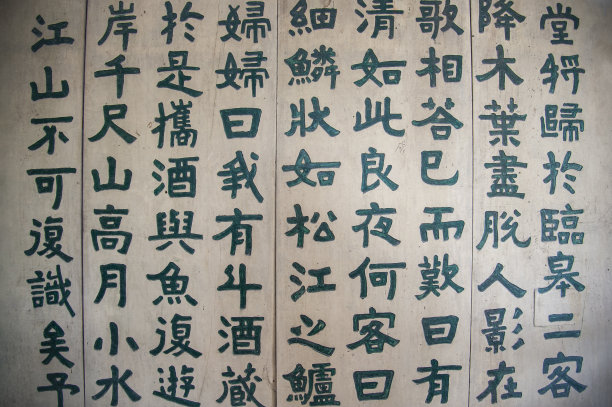 堂將歸於臨皋二客
降木葉盡脫人影在
歌相答已而歎曰有
清如此良夜何客曰
細鱗狀如松江之鱸
婦婦曰我有斗酒藏
於是攜酒與魚復遊
岸千尺山高月小水
江山不可復識矣予